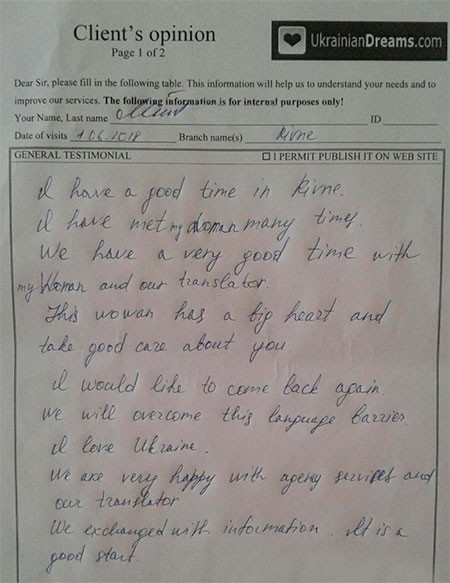 Client's opinion
Page 1 of 2
UkrainianDreams.com
Dear Sir, please fill in the following table. This information will help us to understand your needs and to
improve our services. The following information is for internal purposes only!
Your Name, Last name ID
Date of visits 1 06.2018 Branch name(s) Rivne
GENERAL TESTIMONIAL ☐ I PERMIT PUBLISH IT ON WEB SITE
I have a good time in Rivne.
I have met my woman many times.
We have a very good time with
my Woman and our translator.
This woman has a big heart and
take good care about you.
I would like to come back again.
We will overcome this language barrier
I love Ukraine.
We are very happy with agency services and
our translator
We exchanged with information. It is a
good start.